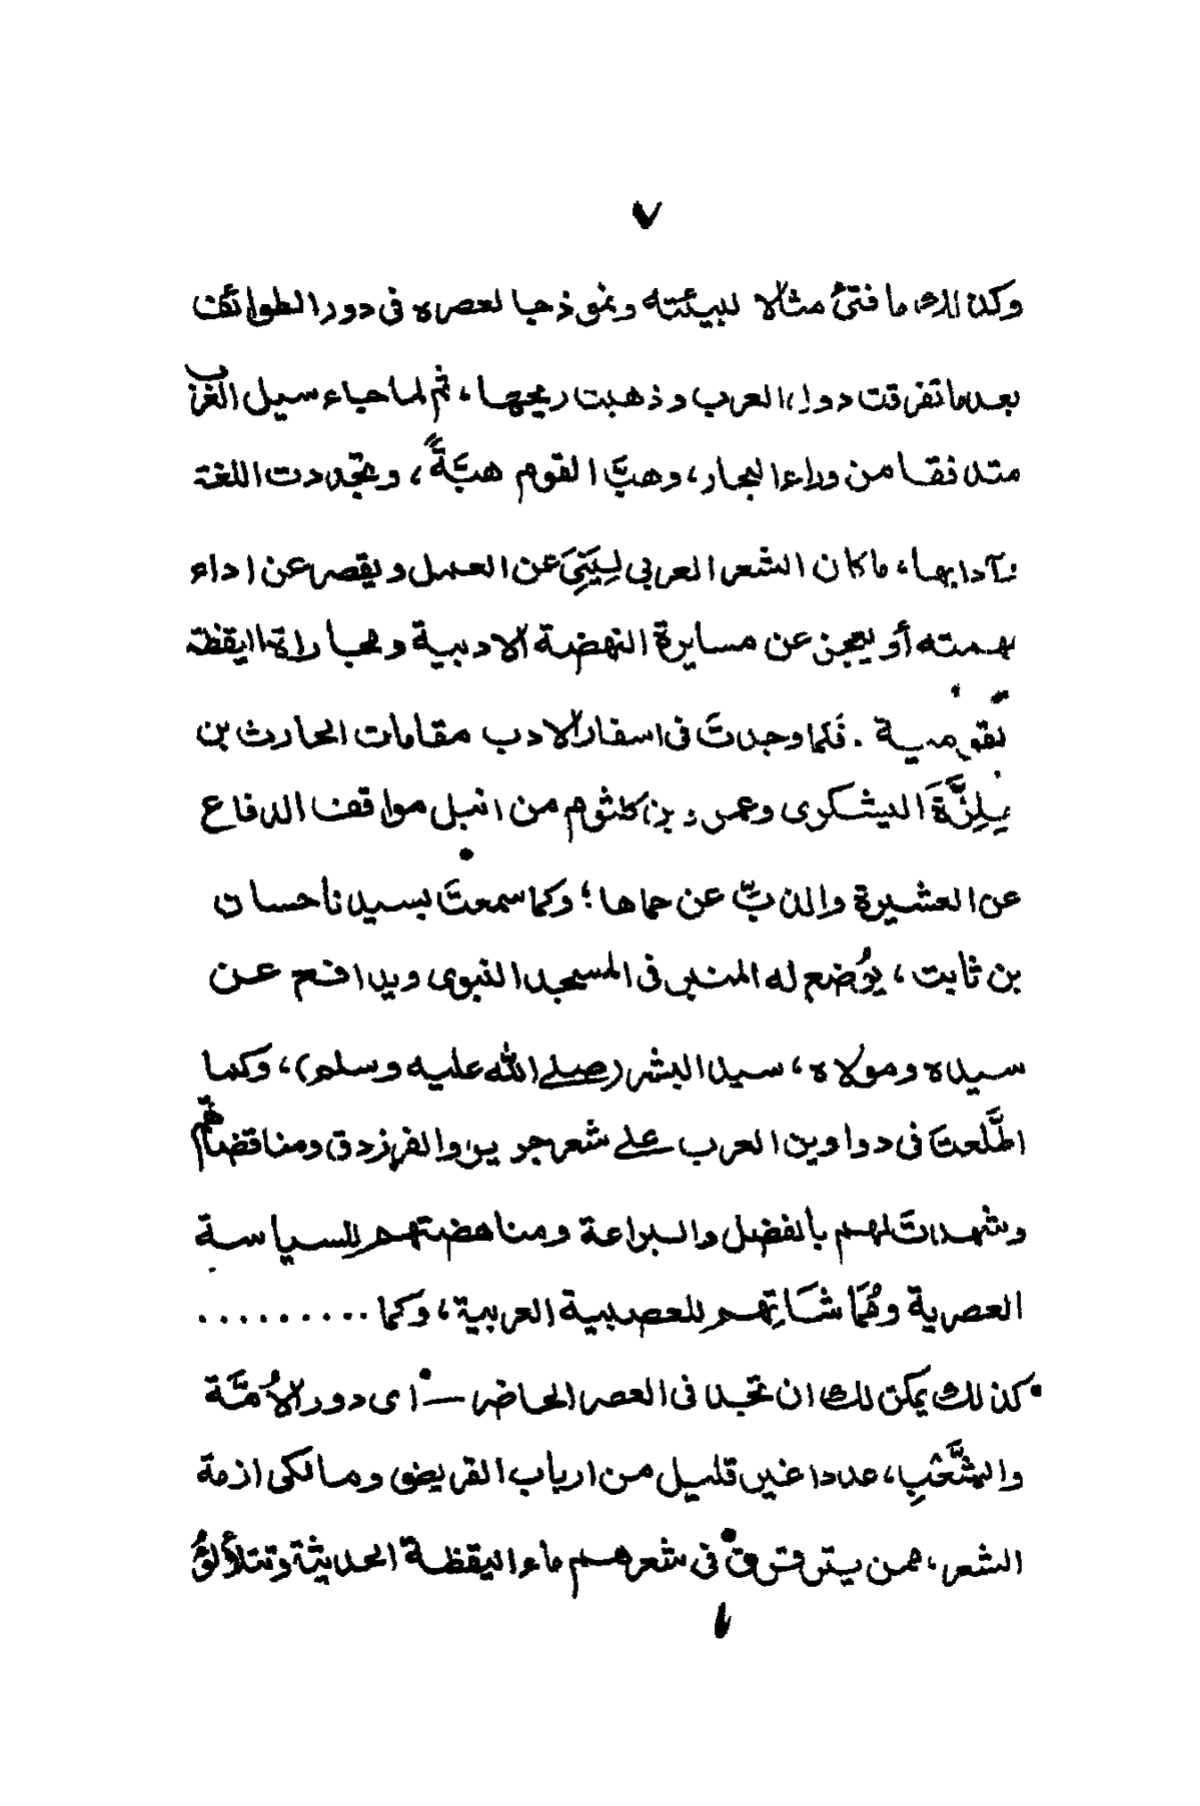 ٧
وكذالك ما فتئ مثالا للبيئته ونموذجا لعصره فى دور الطوائف
بعد ما تفرقت دول العرب وذهبت ريحها، ثم لما جاء سيل الغرب
متدفقا من وراء البحار، وهبَّ القوم هبَّةً، وتجددت اللغة
بآدابها، ما كان الشعر العربى لِيَنِيَ عن العمل ويقصر عن اداء
بهمته أو يعجز عن مسايرة النهضة الادبية ومجاراة اليقظة
القومية . فَكما وجدتَ فى اسفار الادب مقامات الحارث بن
حِلِزَّةَ اليشكرى وعمرو بن كلثوم من انبل مواقف الدفاع
عن العشيرة والذبِّ عن حماها؛ وكما سمعتَ بسيدنا حسان
بن ثابت، يُوضع له المنبر فى المسجد النبوى ويدافع عن
سيده ومولاه، سيد البشر (صلے الله عليه وسلم)، وكما
اطَّلعتَ فى دواوين العرب علے شعر جرير والفرزدق ومناقضاتهم
وشهدتَ لهم بالفضل والبراعة ومناهضتهم للسياسة
العصرية وحُمَاشَاتِهم للعصبية العربية، وكما . . . . . . . . .
كذلك يمكن لك ان تجد فى العصر الحاضر — اى دور الأُمَّة
والشَّعْبِ، عددا غير قليل من ارباب القريض ومالكى ازمة
الشعر، ممن يترقرق فى شعرهم ماء اليقظة الحديثة وتتلألؤُ